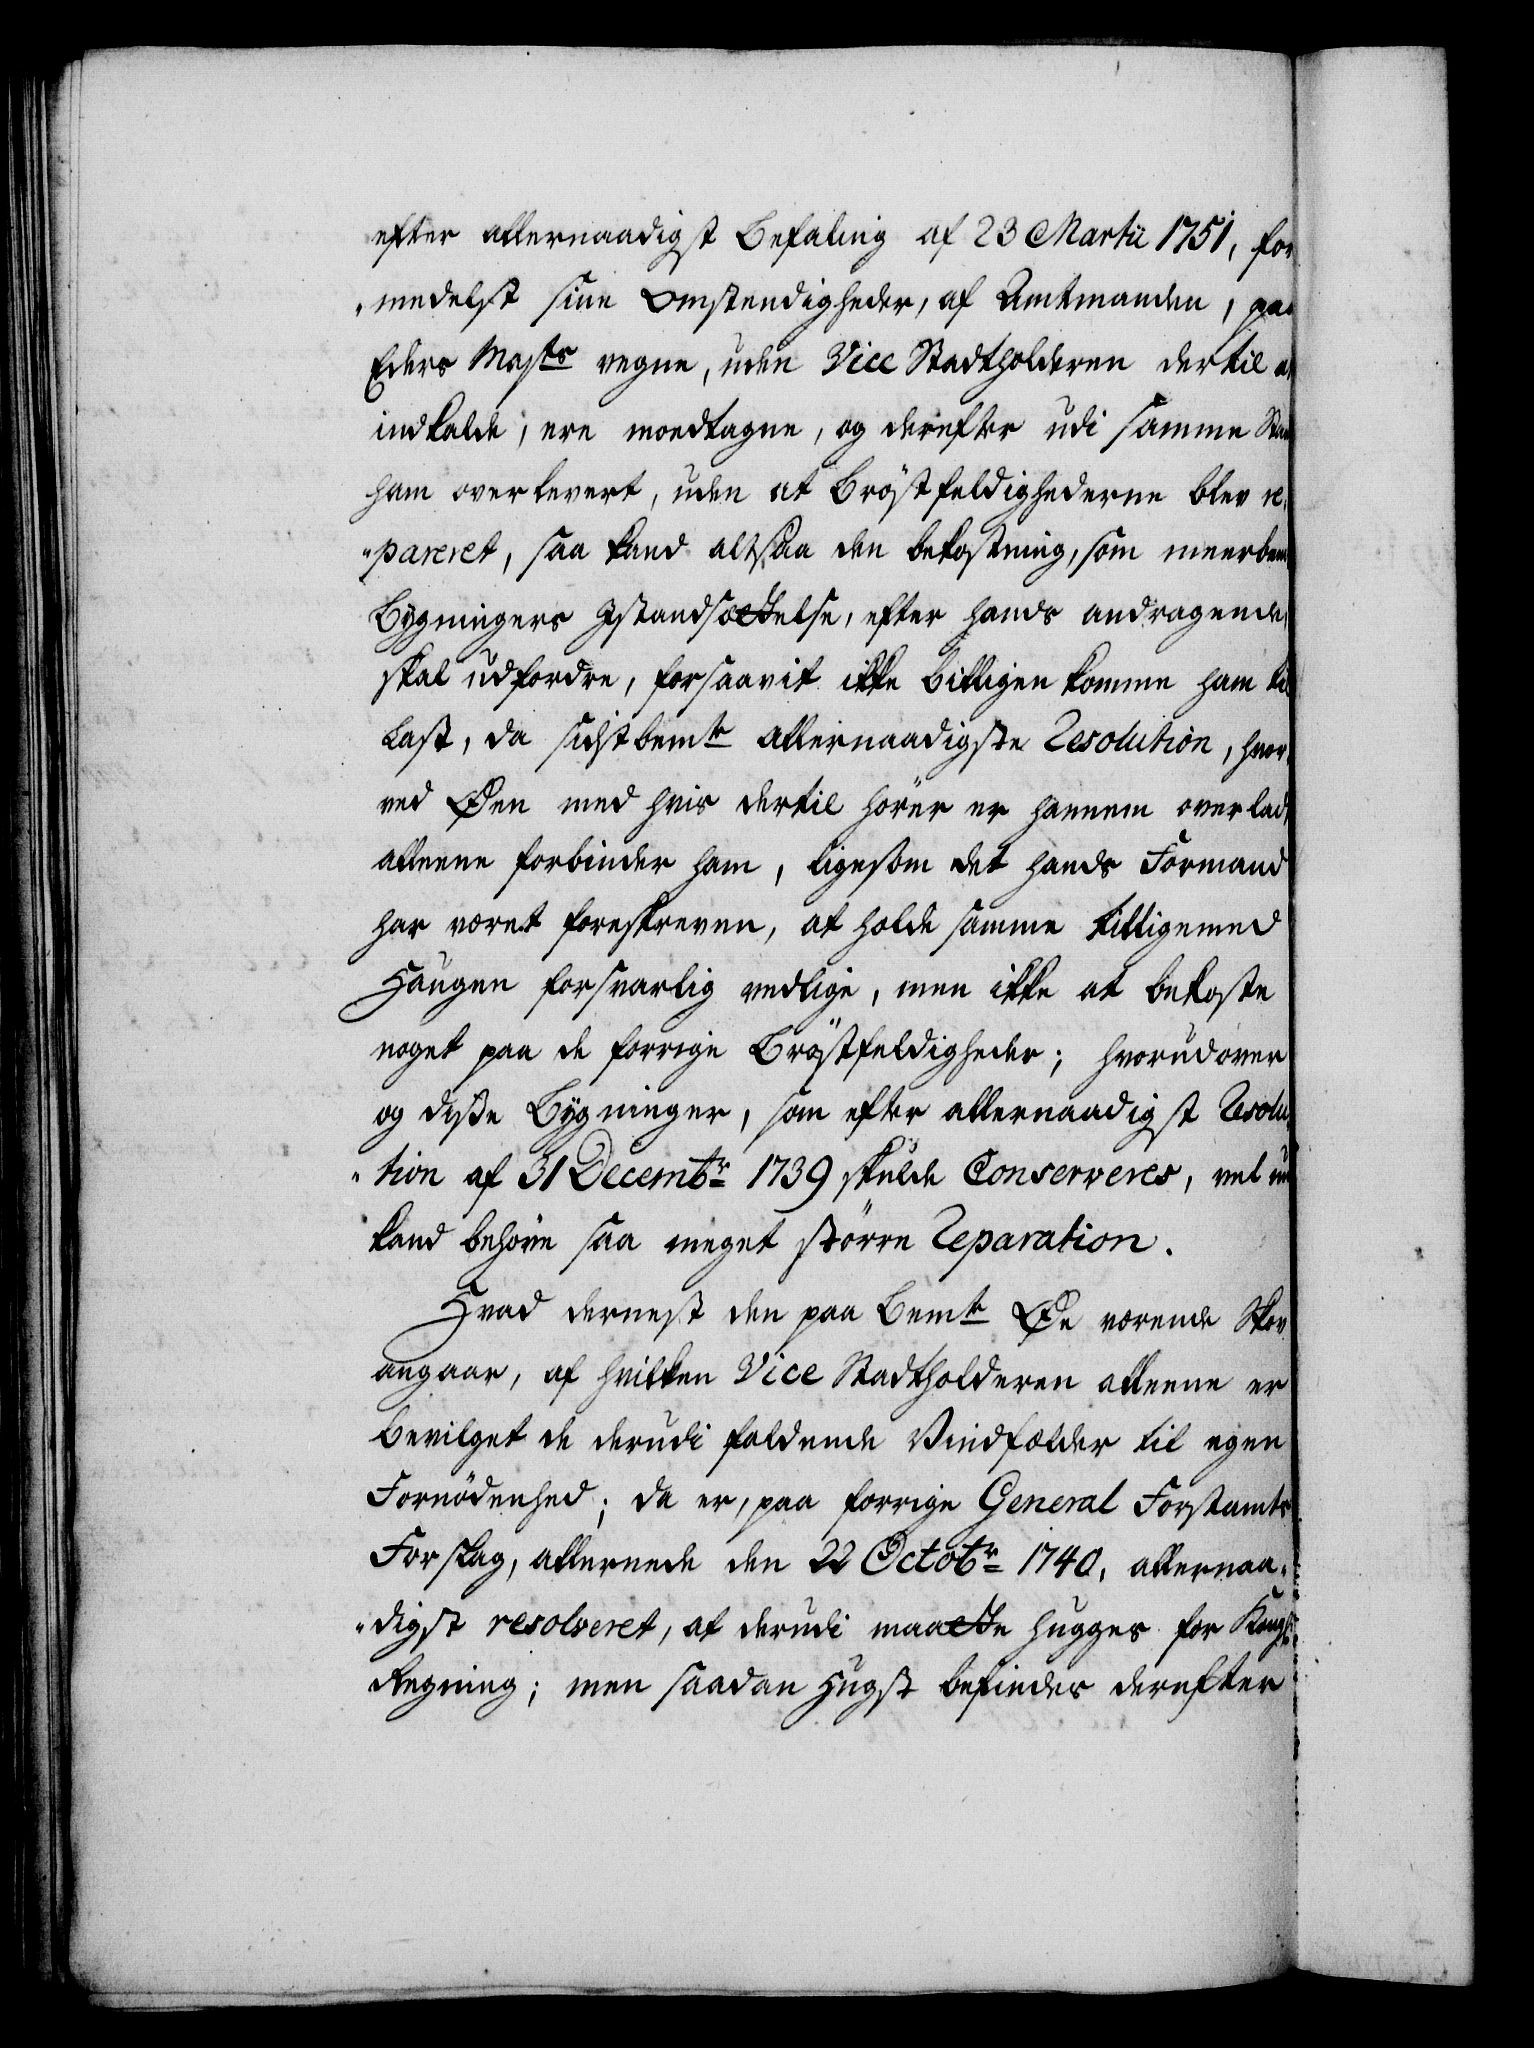 efter allernaadigst Befaling af 23 Martii 1751, for
„medelst sine Omstendigheder, af Amtmanden, paa
Eders Mayts vegne, uden Vice Stadtholderen dertil at
indkalde, ere modtagne, og derefter udi samme Stan
ham overlevert, uden at Bröstfeldighederne blev re,
„pareret, saa kand altsaa den bekostning, som meerbem
Bygningers Istandsættelse, efter hands andragende,
skal udfordre, forsaavit ikke billigen komme ham til
Last, da sidstbemte allernaadigste Resolution, hvor,
ved Øen med hvis dertil hörer er hannem overlad,
alleene forbinder ham, ligesom det hands Formand
har været foreskreven, at holde samme tilligemed
Haugen forsvarlig vedlige, men ikke at bekoste
noget paa de forrige Bröstfeldigheder; hvorudover
og disse Bygninger, som efter allernaadigst Resolu,
„tion af 31 Decembr 1739 skulde Conserveres, vel nu
kand behöve saa meget större Reparation.
Hvad dernest den paa Bemte Øe værende Skov
angaar, af hvilken Vice Stadtholderen alleene er
bevilget de derudi faldende Vindfælder til egen
Fornödenhed; da er, paa forrige General Forstamts
Forslag, allerede den 22 Octobr 1740, allernaa„
„digst resolveret, at derudi maatte hugges for Kongl:
Regning; men saadan Hugst befindes derefter